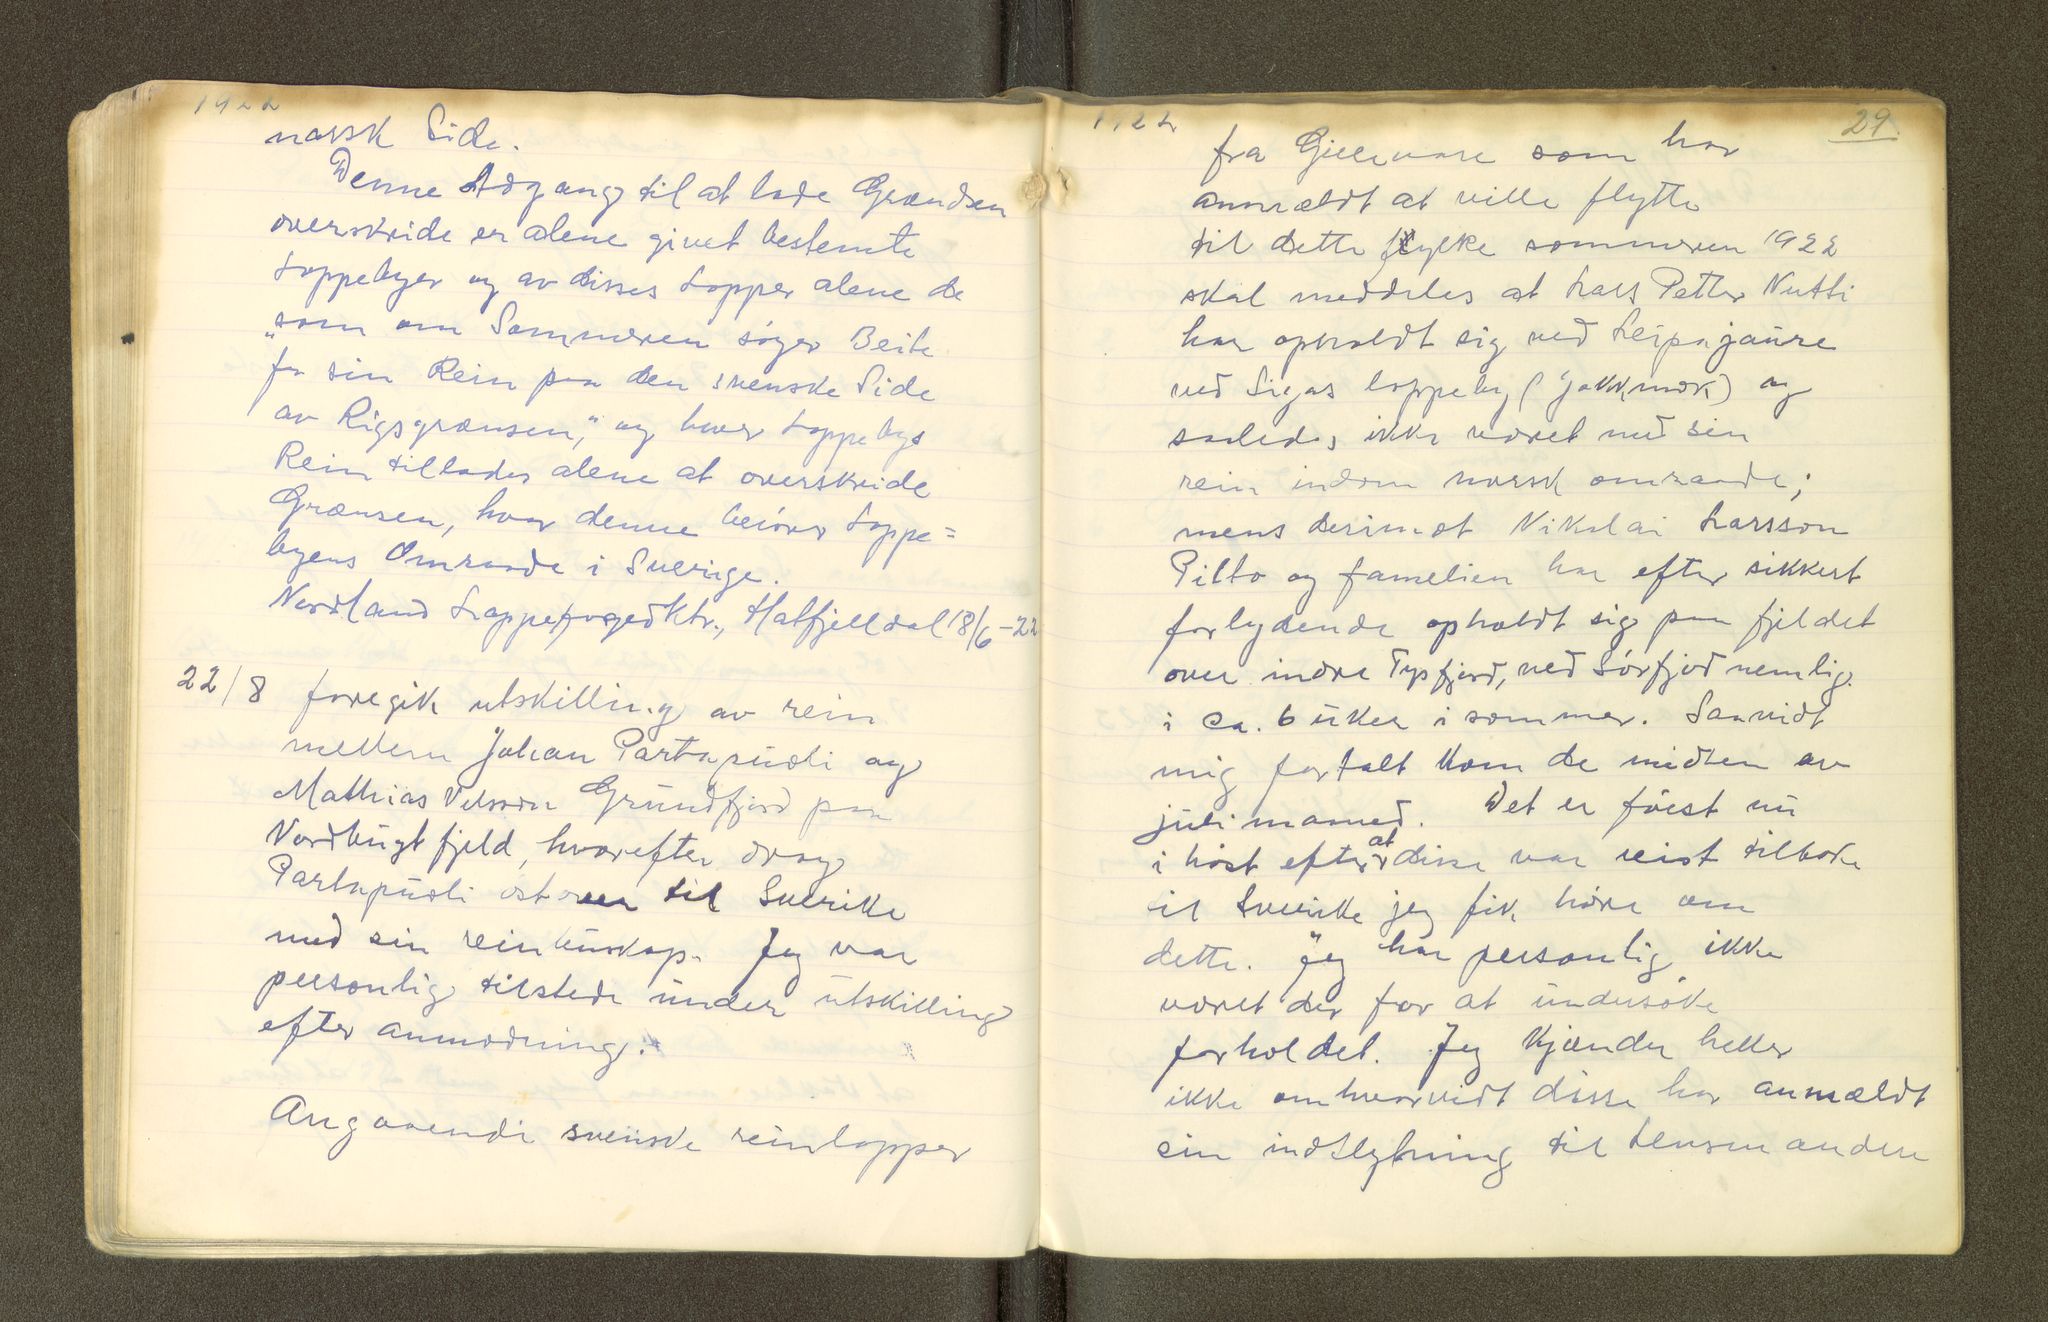 1922
norsk Side.
Denne Adgang til at lade Grændsen
overskride er alene givet bestemte
Lappebyer og av disses Lapper alene de
"som om Sommeren søger Beite
for sin Rein paa den svenske Side
av Rigsgrænsen," og hver Lappebys
Rein tillades alene at overskride
Grænsen, hvor denne berörer Lappe=
byens Omraade i Sverige.
Nordland Lappefogedktr., Hatfjelldal 18/6-22
22/8 foregik utskilling av rein
mellem Johan Partapuoli og
Mathias Nelsson Grundfjord paa
Nordbugtfjeld, hvorefter drog
Partapuoli östover til Sverike
med sin reinbuskap. Jeg var
personlig tilstede under utskilling
efter anmodning.
Angaaende svenske reinlapper
1922
29.
fra Gellevare som har
anmældt at ville flytte
til dette fylke sommeren 1922
skal meddeles at Lars Petter Nutti
har opholdt sig ved Leipajaure
ved Sirgas lappeby (Jokkmok) og
saaledes ikke været med sin
rein indom norsk omraade;
mens derimot Nikolai Larsson
Pilto og familien har efter sikkert
forlydende opholdt sig paa fjeldet
over indre Tysfjord, ved Sörfjord nemlig
i ca. 6 uker i sommer. Saavidt
mig fortalt kom de midten av
juli maaned. Det er först nu
i höst efter at disse var reist tilbake
til Sverike jeg fik höre om
dette. Jeg har personlig ikke
været der for at undersöke
forholdet. Jeg kjænder heller
ikke om hvorvidt disse har anmældt
sin indflytning til Lensmanden